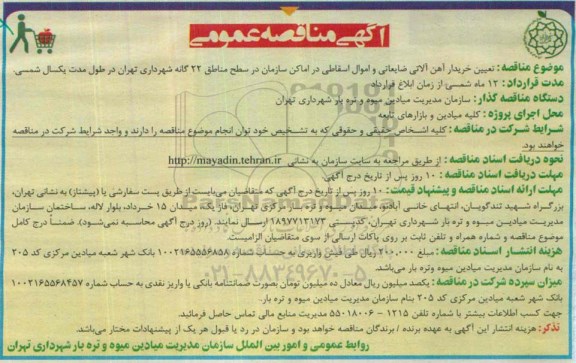 آگهی مناقصه عمومی
موضوع مناقصه: تعیین خریدار آهن آلاتی ضایعاتی و اموال اسقاطی در اماکن سازمان در سطح مناطق ۲۲ گانه شهرداری تهران در طول مدت یکسال شمسی.
مدت قرارداد: ۱۲ ماه شمسی از زمان ابلاغ قرارداد
دستگاه مناقصه گذار: سازمان مدیریت میادین میوه و تره بار شهرداری تهران
محل اجرای پروژه: کلیه میادین و بازارهای تابعه
شرایط شرکت در مناقصه: کلیه اشخاص حقیقی و حقوقی که به تشخیص خود توان انجام موضوع مناقصه را دارند و واجد شرایط شرکت در مناقصه
خواهند بود.
نحوه دریافت اسناد مناقصه: از طریق مراجعه به سایت سازمان به نشانی http://mayadin.tehran.ir
مهلت دریافت اسناد مناقصه: ۱۰ روز پس از تاریخ درج آگهی
مهلت ارائه اسناد مناقصه و پیشنهاد قیمت: ۱۰ روز پس از تاریخ درج آگهی که متقاضیان می‌بایست از طریق پست سفارشی یا (پیشتاز) به نشانی تهران،
بزرگراه شهید تندگویان، انتهای خانی آباد نو، میدان میوه و تره بار مرکزی تهران، فاز یک، میدان ۱۵ خرداد، بلوار لاله، ساختمان سازمان
مدیریت میادین میوه و تره بار شهرداری تهران، کدپستی ۱۸۹۷۷۱۳۱۷۳ ارسال نمایند. (روز درج آگهی محاسبه نمی‌شود). ضمناً درج کامل
موضوع مناقصه و شماره همراه و تلفن ثابت بر روی پاکات ارسالی از سوی متقاضیان الزامیست.
هزینه انتشار اسناد مناقصه: مبلغ ۲۰۰,۰۰۰ ریال طی فیش واریزی به حساب شماره ۱۰۰۲۱۶۵۵۵۶۸۵۸ بانک شهر شعبه میادین مرکزی کد ۲۰۵
به نام سازمان مدیریت میادین میوه وتره بار می‌باشد.
میزان سپرده شرکت در مناقصه: یکصد میلیون ریال معادل ده میلیون تومان بصورت ضمانتنامه بانکی یا واریز نقدی به حساب شماره ۱۰۰۲۱۶۵۵۶۸۴۵۷
بانک شهر شعبه میادین مرکزی کد ۲۰۵ بنام سازمان مدیریت میادین میوه و تره بار.
جهت کسب اطلاعات بیشتر با شماره تلفن ۱۲۱۵ - ۵۵۰۱۸۰۰۶ مدیریت منابع مالی تماس حاصل فرمائید.
تذکر: هزینه انتشار این آگهی به عهده برنده / برندگان مناقصه خواهد بود و سازمان در رد یا قبول هر یک از پیشنهادات مختار می‌باشد.
روابط عمومی و امور بین الملل سازمان مدیریت میادین میوه و تره بار شهرداری تهران
۰۲۱-۸۸۳۴۹۶۷۰-۵